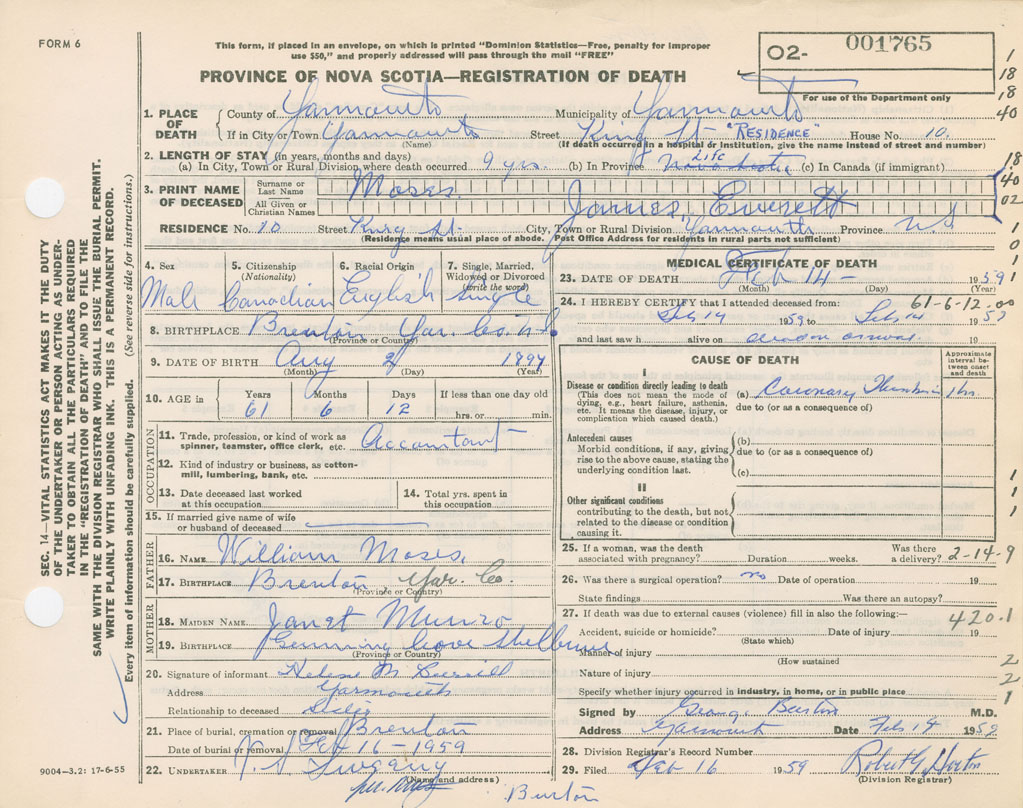 FORM 6
This form, if placed in an envelope, on which is printed "Dominion Statistics—Free, penalty for improper
use $50," and properly addressed will pass through the mail "FREE"
PROVINCE OF NOVA SCOTIA—REGISTRATION OF DEATH
02- 001765
For use of the Department only
1
18
18
40
18
40
02
1
0
1
1. PLACE OF DEATH
County of Yarmouth Municipality of Yarmouth
If in City or Town Yarmouth Street King St- "RESIDENCE" House No. 10.
(Name) (If death occurred in a hospital or Institution, give the name instead of street and number)
2. LENGTH OF STAY (in years, months and days)
(a) In City, Town or Rural Division where death occurred 9 yrs. (b) In Province Life Nova Scotia (c) In Canada (if immigrant)
3. PRINT NAME OF DECEASED
Surname or Last Name Moses
All Given or Christian Names James Everett
RESIDENCE No. 10 Street King St- City, Town or Rural Division Yarmouth Province N S
(Residence means usual place of abode. Post Office Address for residents in rural parts not sufficient)
4. Sex Male
5. Citizenship (Nationality) Canadian
6. Racial Origin English
7. Single, Married, Widowed or Divorced (write the word) Single
8. BIRTHPLACE Brenton Yar. Co. N.S.
(Province or Country)
9. DATE OF BIRTH Aug 2 1897
(Month) (Day) (Year)
10. AGE in Years 61 Months 6 Days 12 If less than one day old hrs. or min.
OCCUPATION
11. Trade, profession, or kind of work as spinner, teamster, office clerk, etc. Accountant
12. Kind of industry or business, as cotton-mill, lumbering, bank, etc.
13. Date deceased last worked at this occupation
14. Total yrs. spent in this occupation
15. If married give name of wife or husband of deceased
FATHER
16. NAME William Moses
17. BIRTHPLACE Brenton Yar. Co.
(Province or Country)
MOTHER
18. MAIDEN NAME Janet Munro
19. BIRTHPLACE Gunning Cove Shelburne
(Province or Country)
20. Signature of informant Helene M
Address Yarmouth
Relationship to deceased Sister
21. Place of burial, cremation or removal Brenton
Date of burial or removal Feb 16-1959
22. UNDERTAKER V. S Sweeny
(Name and address)
per
Burton
MEDICAL CERTIFICATE OF DEATH
23. DATE OF DEATH Feb 14- 1959
(Month) (Day) (Year)
61-6-12-00
24. I HEREBY CERTIFY that I attended deceased from:
Feb 14 1959 to Feb 14 1959
and last saw h alive on dead on arrival 19
CAUSE OF DEATH
Approximate interval between onset and death
I
Disease or condition directly leading to death
(This does not mean the mode of dying, e.g., heart failure, asthenia, etc. It means the disease, injury, or complication which caused death.)
(a) Coronary Thrombosis 1 hr.
due to (or as a consequence of)
Antecedent causes
Morbid conditions, if any, giving rise to the above cause, stating the underlying condition last.
(b)
due to (or as a consequence of)
(c)
II
Other significant conditions
contributing to the death, but not related to the disease or condition causing it.
1
1
1
25. If a woman, was the death associated with pregnancy? Duration weeks. Was there a delivery?
2-14-9
26. Was there a surgical operation? no Date of operation 19
State findings Was there an autopsy?
27. If death was due to external causes (violence) fill in also the following:—
420.1
Accident, suicide or homicide? Date of injury 19
(State which)
Manner of injury
(How sustained
Nature of injury
Specify whether injury occurred in industry, in home, or in public place
2
2
1
Signed by George Burton M.D.
Address Yarmouth Date Feb 14 1959
28. Division Registrar's Record Number
29. Filed Feb 16 1959 Robert G Horton
(Division Registrar)
SEC. 14—VITAL STATISTICS ACT MAKES IT THE DUTY
OF THE UNDERTAKER OR PERSON ACTING AS UNDER-
TAKER TO OBTAIN ALL THE PARTICULARS REQUIRED
IN THE "REGISTRATION OF DEATH" AND TO FILE THE
SAME WITH THE DIVISION REGISTRAR WHO SHALL ISSUE THE BURIAL PERMIT.
WRITE PLAINLY WITH UNFADING INK. THIS IS A PERMANENT RECORD.
Every item of information should be carefully supplied. (See reverse side for instructions.)
9004—3.2: 17-6-55